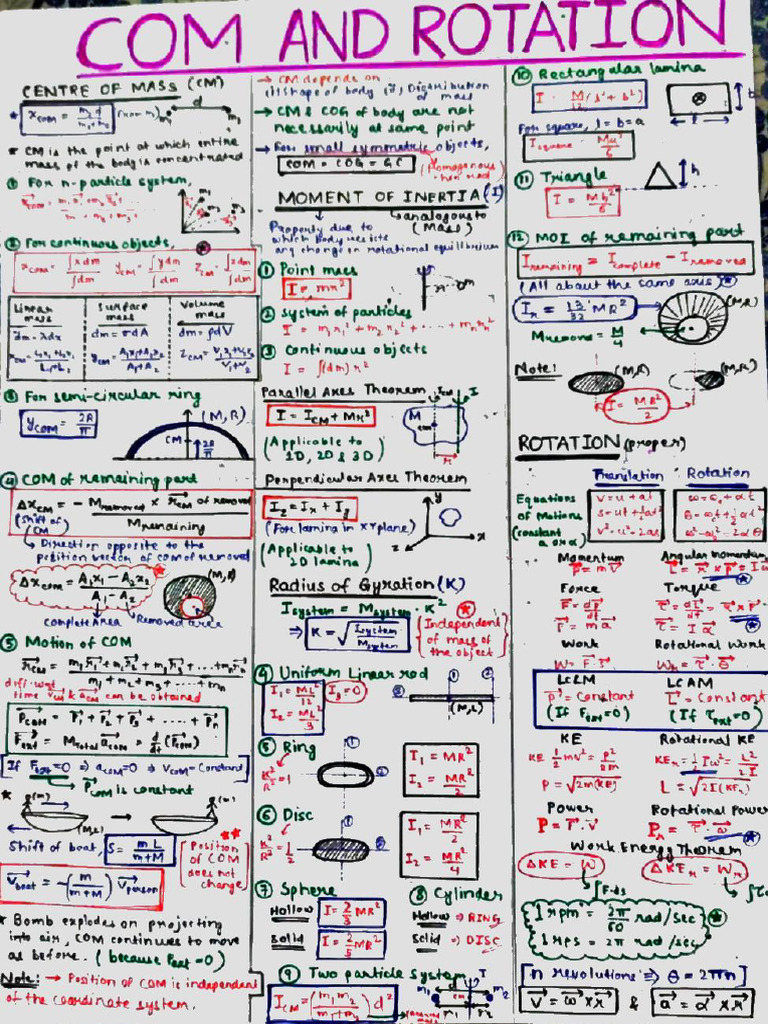 COM AND ROTATION
CENTRE OF MASS (CM)
* x_COM = m₂d / m₁+m₂
d
m₁ m₂
* CM is the point at which entire
mass of the body is concentrated
① For n-particle system,
② For continuous objects,
x_CM = ∫xdm / ∫dm y_CM = ∫ydm / ∫dm
Linear mass | Surface mass | Volume mass
dm = λdx | dm = σdA | dm = ρdV
y_CM = A₁y₁+A₂y₂ / A₁+A₂
③ For semi-circular ring
y_COM = 2R/π
(M, R)
CM 2R/π
④ COM of remaining part
Δx_CM = − M_removed × r⃗_CM of removed / M_remaining
(Shift of CM)
↳ Direction opposite to the
position vector of COM of removed
Δx_COM = A₁x₁ − A₂x₂ / A₁ − A₂
Complete Area Removed area
⑤ Motion of COM
r⃗_CM = m₁r⃗₁ + m₂r⃗₂ + m₃r⃗₃ + .... + mₙr⃗ₙ / m₁ + m₂ + m₃ + .... + mₙ
diff. wrt
time v⃗_CM & a⃗_CM can be obtained
P⃗_COM = P⃗₁ + P⃗₂ + P⃗₃ + ..... + P⃗ₙ
F⃗_ext = M_Total a⃗_COM = d/dt (P⃗_COM)
If F_ext = 0 ⇒ a_COM = 0 ⇒ v_COM = Constant
P⃗_COM is constant
(m) (m)
(M,L)
Shift of boat, S = mL / m+M
[Position of COM does not change]
v⃗_boat = −(m / m+M) v⃗_person
* Bomb explodes on projecting
into air, COM continues to move
as before. (because F_ext = 0)
Note: → Position of COM is independent
of the coordinate system.
→ CM depends on
(i) Shape of body (ii) Distribution of mass
→ CM & COG of body are not
necessarily at same point
→ For small symmetric objects,
COM = COG = GC
MOMENT OF INERTIA (I)
analogous to (Mass)
Property due to
which body resists
any change in rotational equilibrium
① Point mass
I = mr²
② system of particles
I = m₁r₁² + m₂r₂² + ..... + mₙrₙ²
③ Continuous objects
I = ∫(dm)r²
Parallel Axes Theorem
I = I_CM + Mr²
(Applicable to
1D, 2D & 3D)
I_CM I
M
CM
r
Perpendicular Axes Theorem
I_z = I_x + I_y
(For lamina in xy plane)
(Applicable to
2D lamina)
y
x
z
Radius of Gyration (K)
I_system = M_system · K²
⇒ K = √(I_system / M_system)
Independent
of mass of
the object
④ Uniform Linear rod
I₁ = ML²/12 I₃ = 0
I₂ = ML²/3
① ② ③ (M,L)
⑤ Ring
K²/R² = 1
I₁ = MR²
I₂ = MR²/2
① ②
⑥ Disc
K²/R² = 1/2
I₁ = MR²/2
I₂ = MR²/4
① ②
⑦ Sphere
Hollow I = 2/3 MR²
Solid I = 2/5 MR²
⑧ Cylinder
Hollow ⇒ RING
Solid ⇒ DISC
⑨ Two particle System
I_CM = (m₁m₂ / m₁+m₂) d²
d I
m₁ CM m₂
r₁ r₂
⑩ Rectangular lamina
I = M/12 (l² + b²)
l b
For square, l = b = a
I_square = Ma²/6
⑪ Triangle
I = Mh²/6
h
⑫ MOI of remaining part
I_remaining = I_complete − I_removed
(All about the same axis)
I_r = 13/32 MR²
(M,R)
M_removed = M/4
Note:
(M,R) (M,R)
I = MR²/2
ROTATION (proper)
Translation Rotation
Equations
of Motions
(constant
a or α)
v = u + at
s = ut + ½at²
v² = u² + 2as
ω = ω₀ + αt
θ = ω₀t + ½αt²
ω² = ω₀² + 2αθ
Momentum
P⃗ = mv⃗
Angular Momentum
Force
F⃗ = dp⃗/dt
F⃗ = ma⃗
Torque
τ⃗ = dL⃗/dt = r⃗ × F⃗
τ⃗ = Iα⃗
Work
W = F⃗·s⃗
Rotational Work
W_R = τ⃗·θ⃗
LCLM
P⃗ = Constant
(If F_ext = 0)
LCAM
L⃗ = Constant
(If τ_ext = 0)
KE
KE = ½mv² = P²/2m
P = √2m(KE)
Rotational KE
KE_R = ½Iω² = L²/2I
L = √2I(KE_R)
Power
P = F⃗·v⃗
Rotational Power
P_R = τ⃗·ω⃗
Work Energy Theorem
ΔKE = W
ΔKE_R = W_R
∫F·ds
1 rpm = 2π/60 rad/sec
1 rps = 2π rad/sec
[n revolutions ⇒ θ = 2πn]
v⃗ = ω⃗ × r⃗ & a⃗ = α⃗ × r⃗